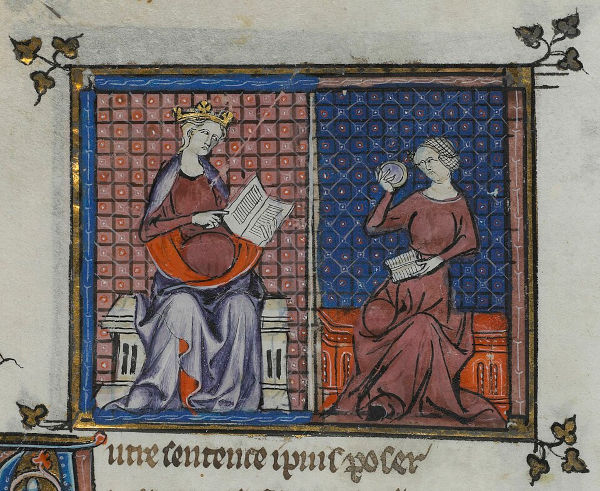 utre sentence i puis poser